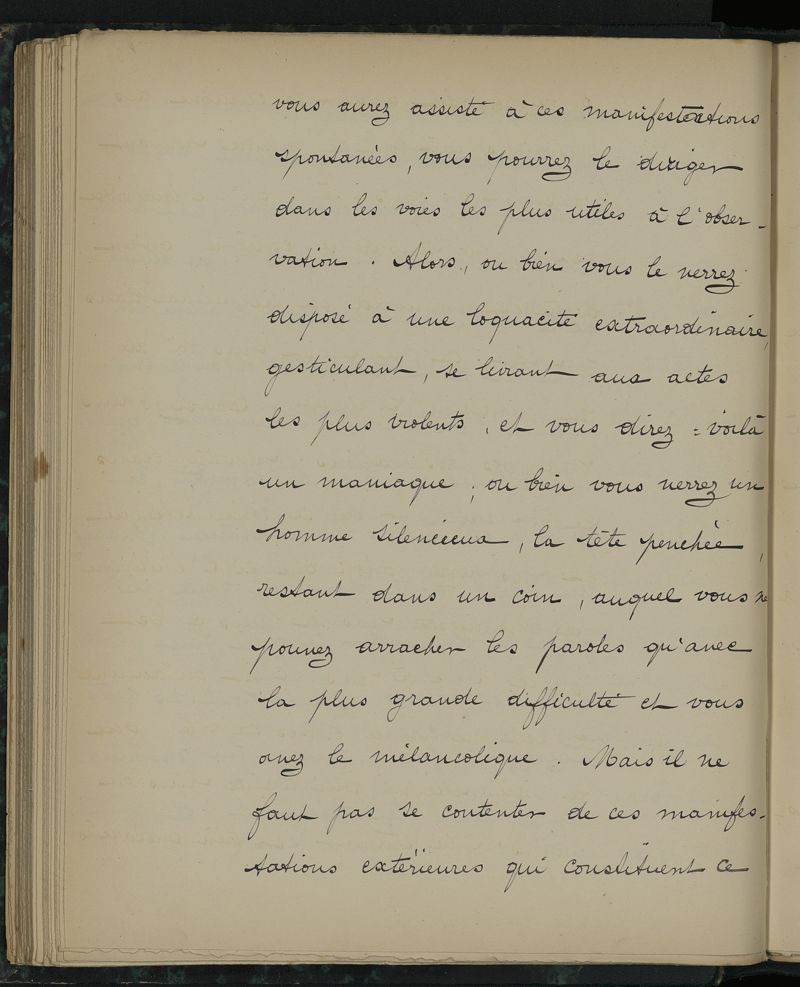 vous aurez assisté à ces manifestations
spontanées, vous pourrez le diriger
dans les voies les plus utiles à l'obser-
vation. Alors, ou bien vous le verrez
disposé à une loquacité extraordinaire,
gesticulant, se livrant aux actes
les plus violents, et vous direz : voilà
un maniaque ; ou bien vous verrez un
homme silencieux, la tête penchée,
restant dans un coin, auquel vous ne
pouvez arracher les paroles qu'avec
la plus grande difficulté et vous
avez le mélancolique. Mais il ne
faut pas se contenter de ces manifes-
tations extérieures qui constituent ce